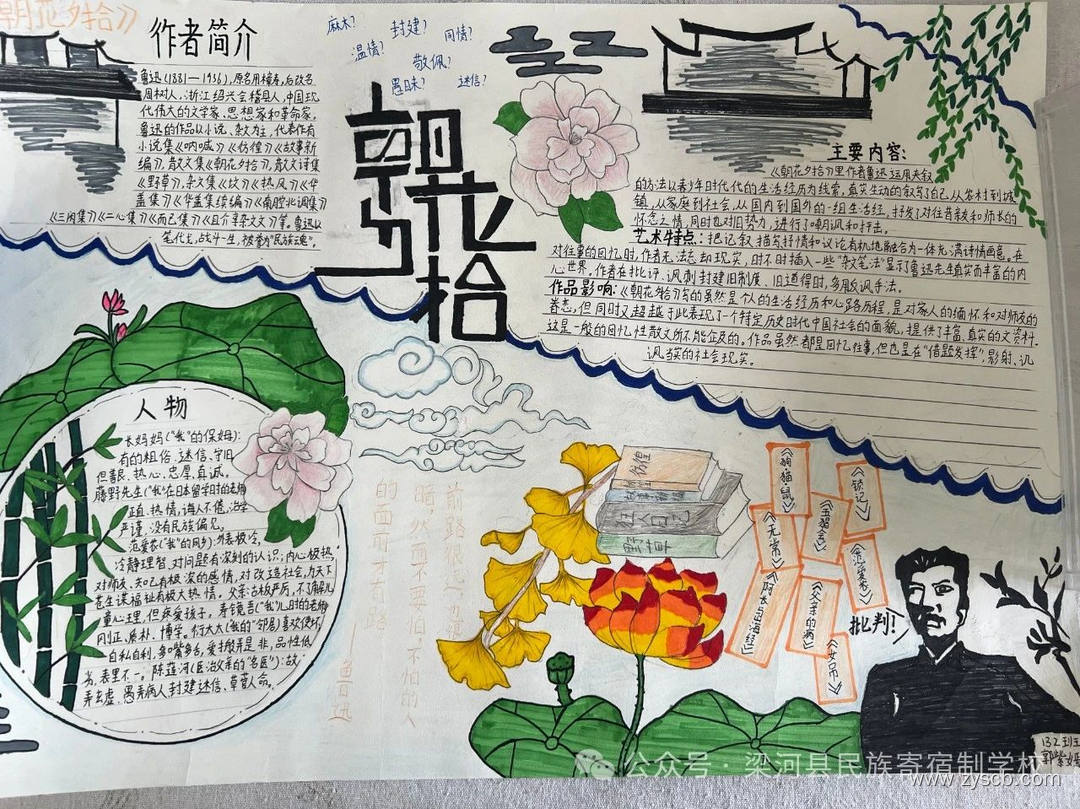 朝花夕拾》
作者简介
鲁迅(1881—1936),原名周樟寿,后改名
周树人,浙江绍兴会稽县人,中国现
代伟大的文学家、思想家和革命家。
鲁迅的作品以小说、杂文为主,代表作有
小说集《呐喊》《彷徨》《故事新
编》,散文集《朝花夕拾》,散文诗集
《野草》,杂文集《坟》《热风》《华
盖集》《华盖集续编》《南腔北调集》
《三闲集》《二心集》《而已集》《且介亭杂文》等。鲁迅以
笔代主,战斗一生,被誉为"民族魂"。
麻木?
封建?
同情?
温情?
敬佩?
愚昧?
迷信?
朝花夕拾
主要内容:
《朝花夕拾》里作者鲁迅运用夹叙
的方法以青少年时代代的生活经历为线索,真实生动的叙写了自己从农村到城
镇,从家庭到社会,从国内到国外的一组生活经,抒发了对往昔亲和师长的
怀念之情,同时也对旧势力,进行了嘲讽和抨击。
艺术特点:把记叙、描写抒情和议论有机地融合为一体充满诗情画意。在
对往事的回忆时,作者无法忘却现实,时不时插入一些"杂文笔法"显示了鲁迅先生真实而丰富的内
心世界。作者在批评、讽刺封建旧制度、旧道德时,多用反讽手法。
作品影响:《朝花夕拾》写的虽然是个人的生活经历和心路历程,是对家人的缅怀和对师友的
眷恋,但同时又超越于此表现了一个特定历史时代中国社会的面貌,提供了丰富、真实的文资料。
这是一般的回忆性散文所不能企及的。作品虽然都是回忆往事,但也是在"借题发挥",影射、讥
讽当实的社会现实。
人物
长妈妈("我"的保姆):
有的粗俗、迷信、守旧
但善良、热心、忠厚、真诚。
藤野先生("我"在日本留学时的老师
正直、热情,诲人不倦,治学
严谨,没有民族偏见。
范爱农("我"的同乡):外表极冷,
冷静理智,对问题有深刻的认识;内心极热,
对师友、知己有极深的感情,对改造社会,为天下
苍生谋福祉有极大热情。父亲:古板严厉,不了解儿
童心理,但疼爱孩子。寿镜吾("我"儿时的老师
刚正、质朴、博学。衍太太(我的"邻居)喜欢使坏,
自私自利,多嘴多舌,爱搬弄是非,品性低
劣,表里不一。陈莲河(医治父亲的"名医"):故
弄玄虚,愚弄病人封建迷信、草菅人命。
前路很远,也很
暗,然而不要怕,不怕的人
的面前才有路
鲁迅
彷徨
故事新编
狂人日记
野草
《狗·猫·鼠》
《锁记》
《五猖会》
《无常》
《范爱农》
《阿长与山海经》
《父亲的病》
《女吊》
批判!
132班王
公众号·梁河县民族寄宿制学校
www.zyscb.com